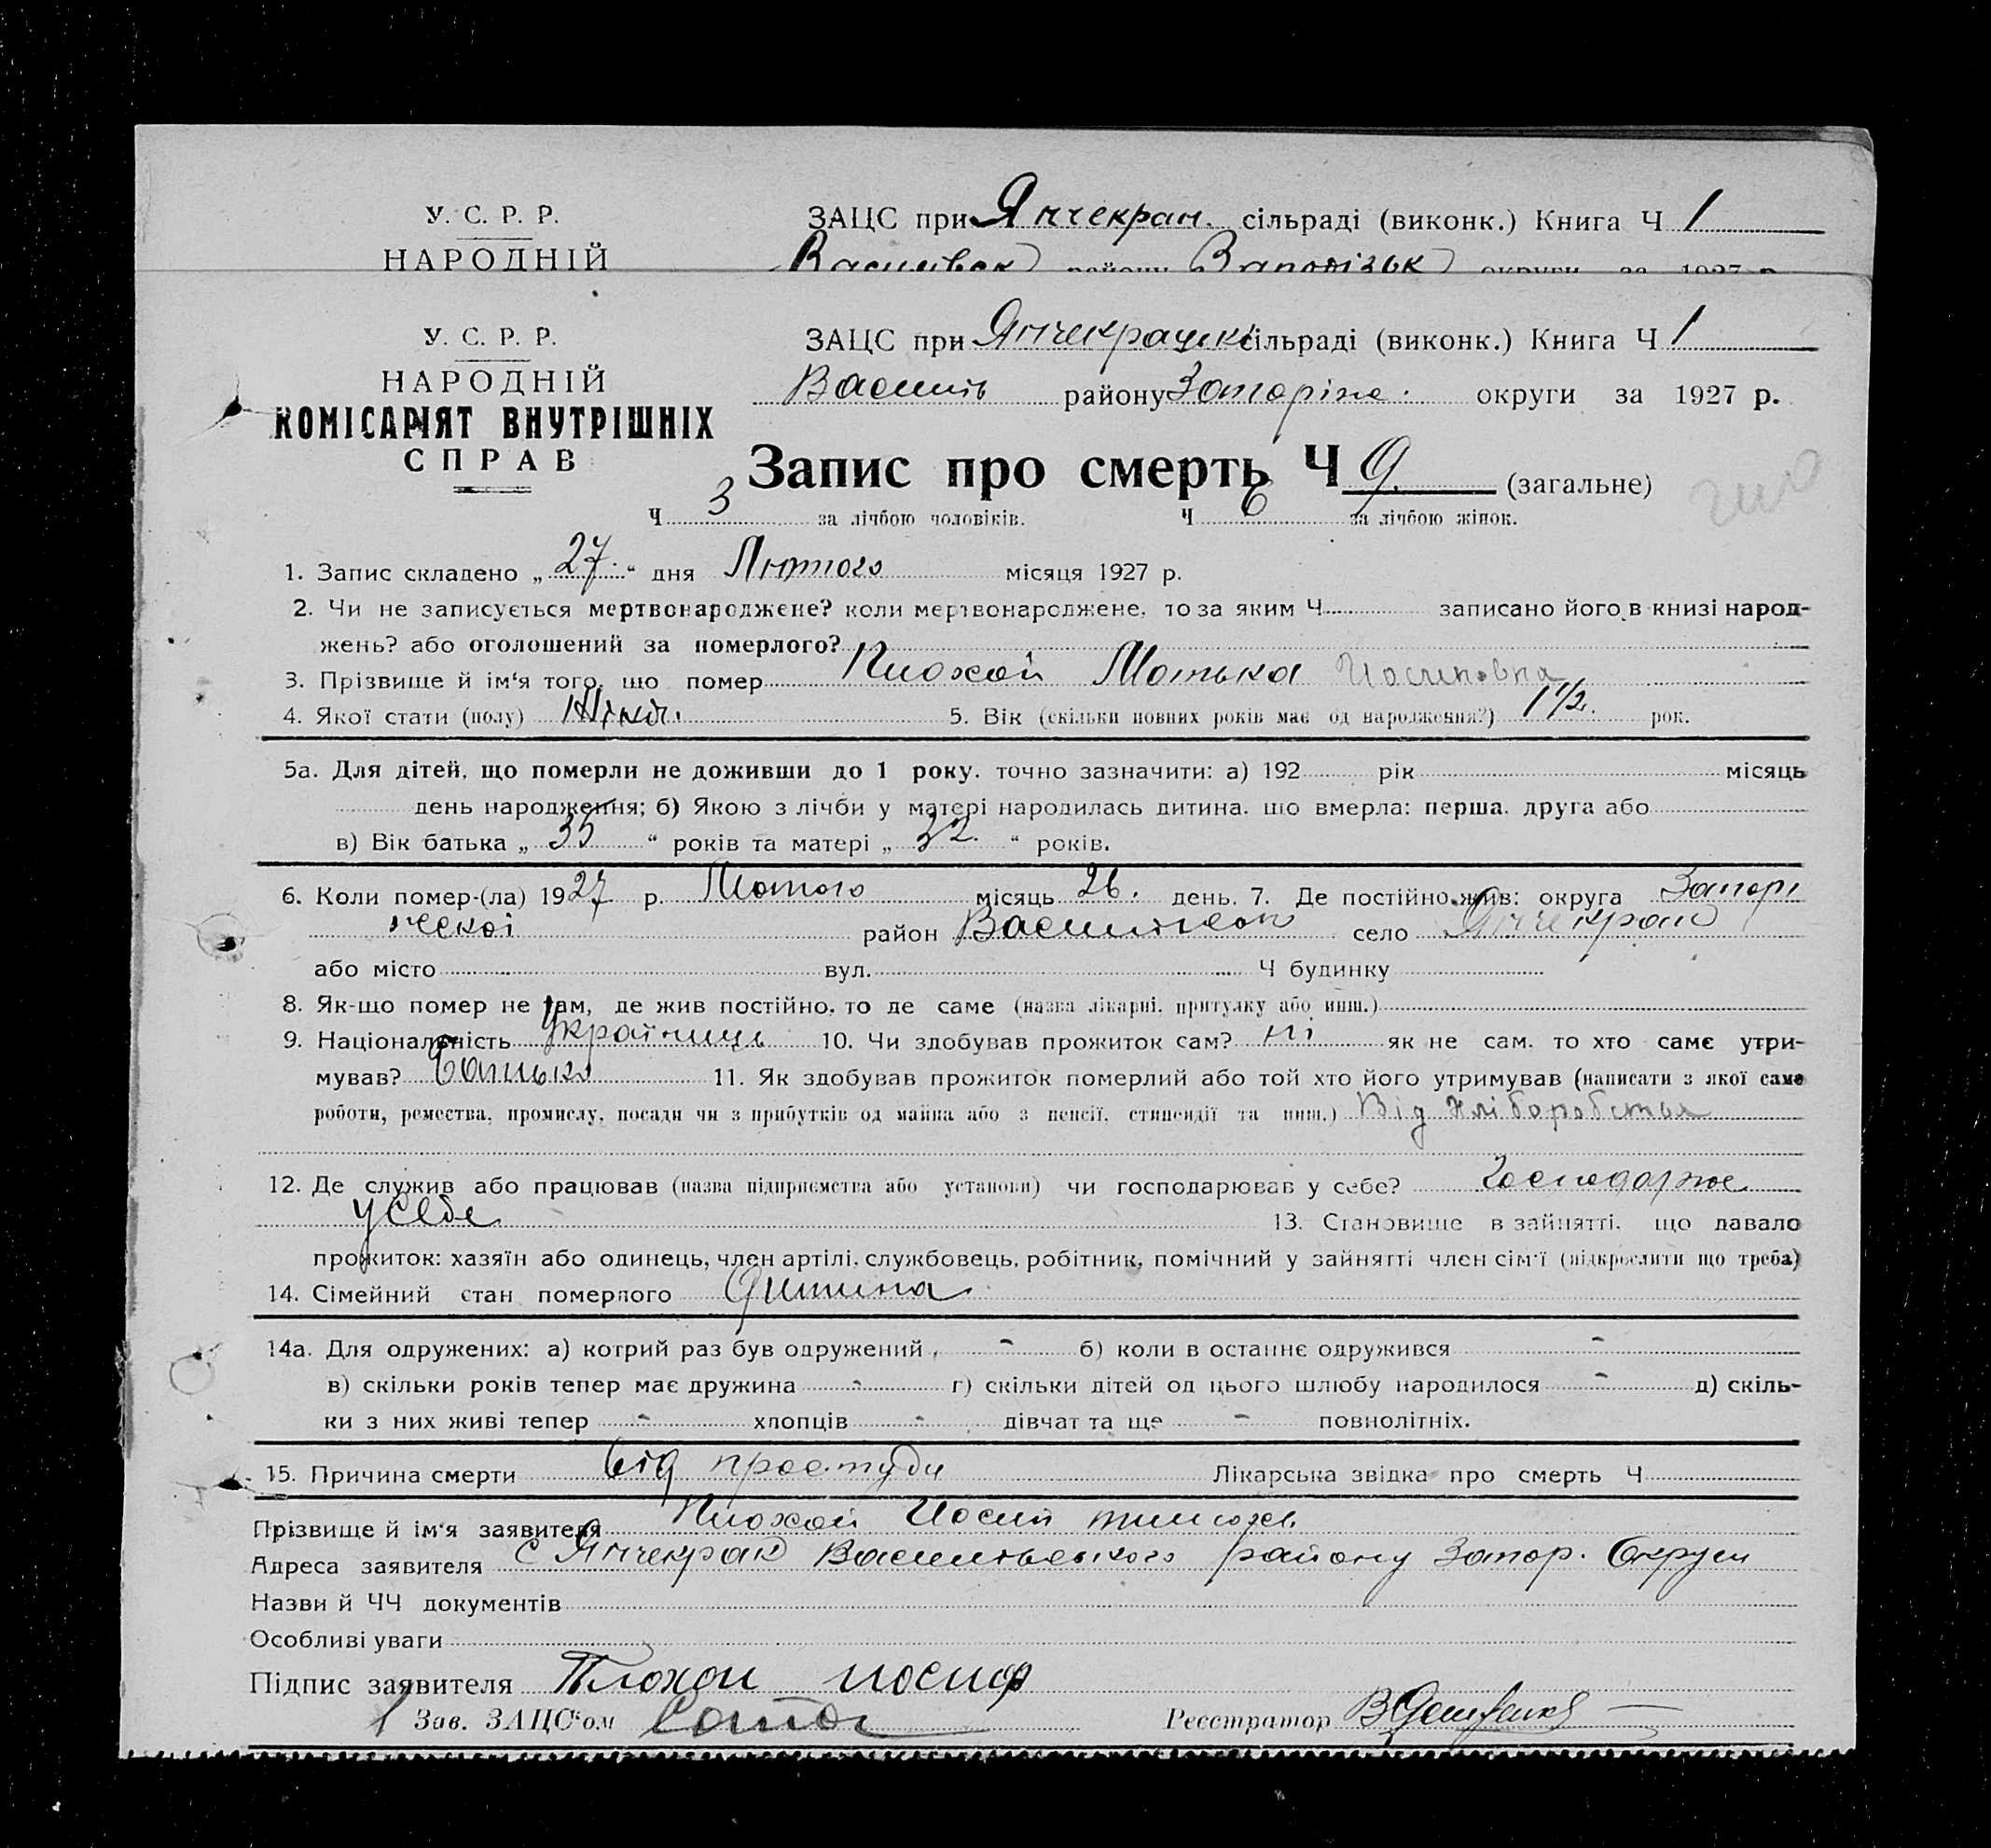 У. С. Р. Р.
ЗАЦС при Янчекрак. сільраді (виконк.) Книга Ч 1
НАРОДНІЙ
Василівск району Запоізьк округи за 1927 р.
У. С. Р. Р.
ЗАЦС при сільраді (виконк.) Книга Ч 1
НАРОДНІЙ
Василів району Запоріж. округи за 1927 р.
КОМІСАРІЯТ ВНУТРІШНІХ
СПРАВ
Запис про смерть Ч 9. (загальне)
Ч 3 за лічбою чоловіків. Ч 6 за лічбою жінок.
1. Запис складено „27.“ дня Лютого місяця 1927 р.
2. Чи не записується мертвонароджене? коли мертвонароджене, то за яким Ч записано його в книзі народ-
жень? або оголошений за померлого?
3. Прізвище й ім'я того, що помер Плохой Мотька Иосиповна
4. Якої стати (полу) Жіноч. 5. Вік (скільки повних років має од народження?) 1 1/2. рок.
5а. Для дітей, що померли не доживши до 1 року, точно зазначити: а) 192 рік місяць
день народження; б) Якою з лічби у матері народилась дитина, що вмерла: перша, друга або
в) Вік батька „35“ років та матері „32.“ років.
6. Коли помер-(ла) 1927 р. Лютого місяць 26. день. 7. Де постійно жив: округа Запорі
жскоі район Василівском село Янчекрак
або місто вул. Ч будинку
8. Як-що помер не там, де жив постійно, то де саме (назва лікарні, притулку або инш.)
9. Національність Українець 10. Чи здобував прожиток сам? ні як не сам, то хто саме утри-
мував? батько 11. Як здобував прожиток померлий або той хто його утримував (написати з якої саме
роботи, ремества, промислу, посади чи з прибутків од майна або з пенсії, стипендії та инш.) Від хліборобства
12. Де служив або працював (назва підприємства або установи) чи господарював у себе? Господарює
у себе 13. Становище в зайнятті, що давало
прожиток: хазяїн або одинець, член артілі, службовець, робітник, помічний у зайнятті член сім'ї (підкреслити що треба)
14. Сімейний стан померлого Дитина
14а. Для одружених: а) котрий раз був одружений - б) коли в останнє одружився -
в) скільки років тепер має дружина - г) скільки дітей од цього шлюбу народилося - д) скіль-
ки з них живі тепер - хлопців - дівчат та ще - повнолітніх.
15. Причина смерти від простуди Лікарська звідка про смерть Ч
Прізвище й ім'я заявителя Плохой Иосип
Адреса заявителя с Янчекрак Василівського району Запор. Округи
Назви й ЧЧ документів
Особливі уваги
Підпис заявителя Плохой Иосиф
Зав. ЗАЦС'ом Реєстратор